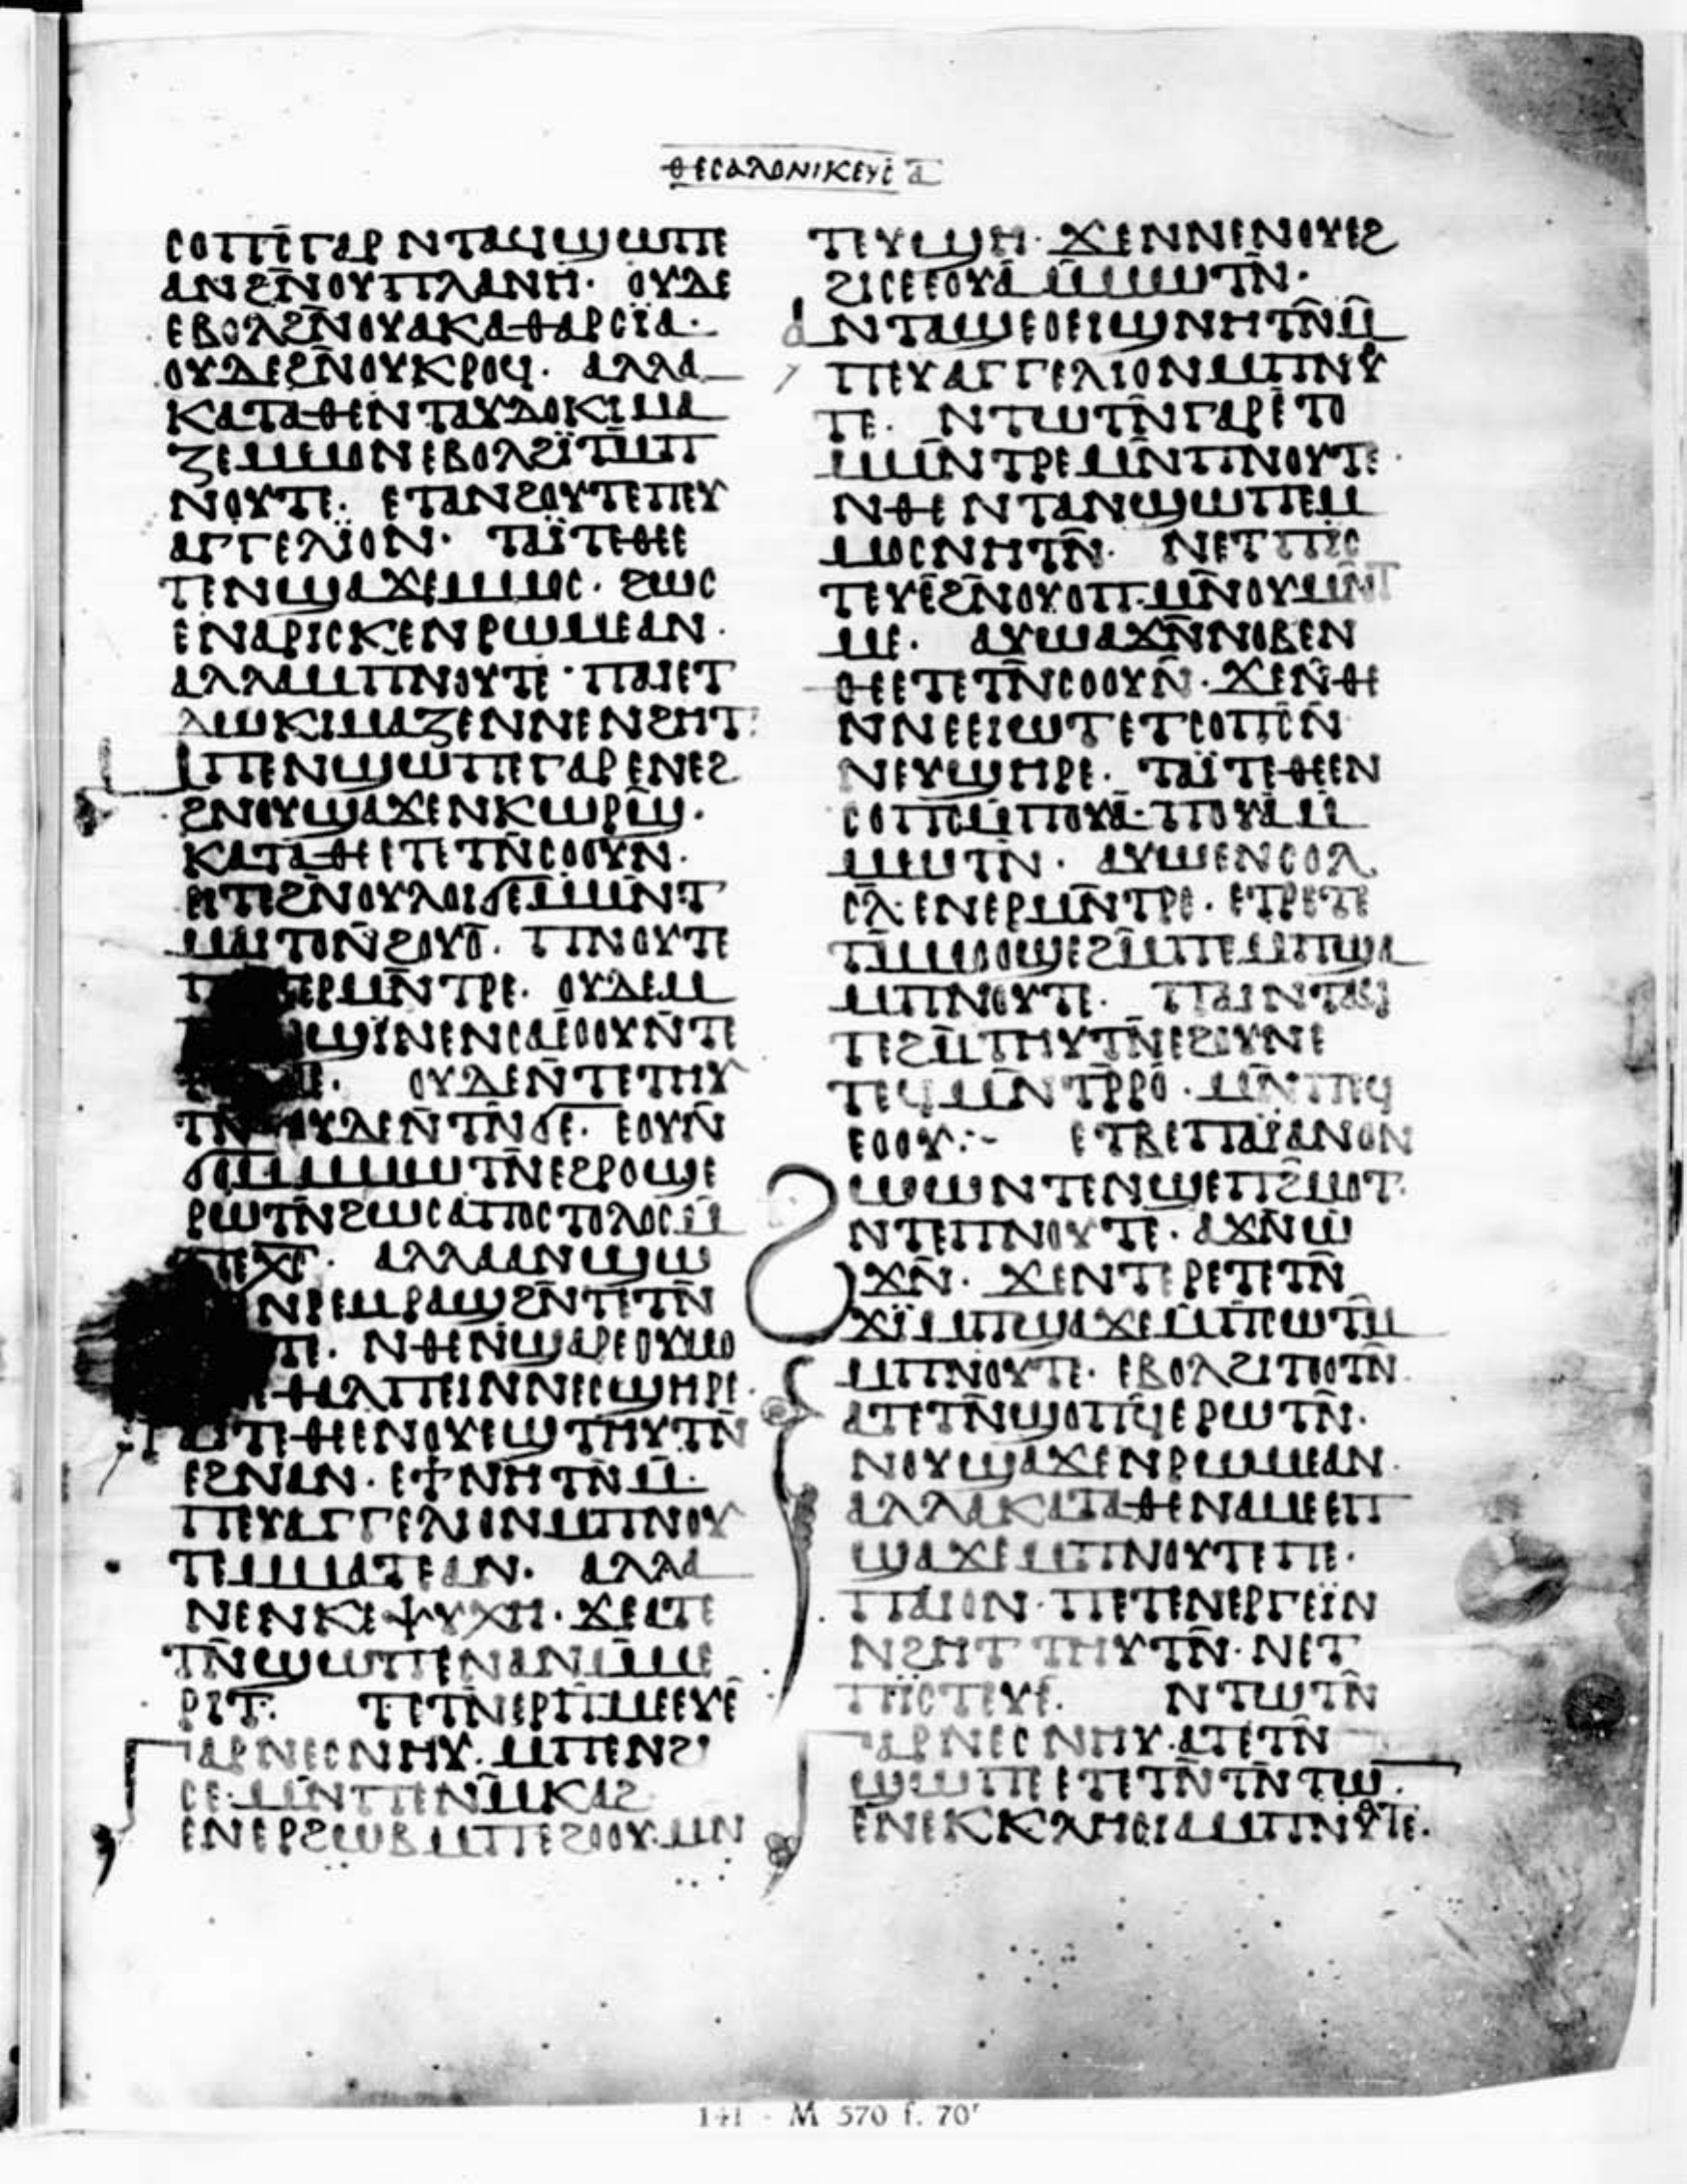 ⲑⲉⲥⲁⲗⲟⲛⲓⲕⲉⲩⲥ ⲁ̅
ⲥⲟⲡⲥ̅ⲅⲁⲣ ⲛⲧⲁϥϣⲱⲡⲉ
ⲁⲛϩⲛ̅ⲟⲩⲡⲗⲁⲛⲏ· ⲟⲩⲇⲉ
ⲉⲃⲟⲗϩⲛ̅ⲟⲩⲁⲕⲁⲑⲁⲣⲥⲓ̈ⲁ·
ⲟⲩⲇⲉϩⲛ̅ⲟⲩⲕⲣⲟϥ· ⲁⲗⲗⲁ
ⲕⲁⲧⲁⲑⲉⲛⲧⲁⲩⲇⲟⲕⲓⲙⲁ
ⲍⲉⲙⲙⲟⲛⲉⲃⲟⲗϩⲓ̈ⲧⲙ̅ⲡ
ⲛⲟⲩⲧⲉ· ⲉⲧⲁⲛϩⲟⲩⲧⲉⲡⲉⲩ
ⲁⲅⲅⲉⲗⲓ̈ⲟⲛ· ⲧⲁⲓ̈ⲧⲉⲑⲉⲉ
ⲧⲉⲛϣⲁϫⲉⲙⲙⲟⲥ· ϩⲱⲥ
ⲉⲛⲁⲣⲓⲥⲕⲉⲛⲣⲱⲙⲉⲁⲛ·
ⲁⲗⲗⲁⲙⲡⲛⲟⲩⲧⲉ· ⲡⲁⲓⲉⲧ
ⲇⲱⲕⲓⲙⲁⲍⲉⲛⲛⲉⲛϩⲏⲧ·
ⲙⲡⲉⲛϣⲱⲡⲉⲅⲁⲣⲉⲛⲉϩ
ϩⲛⲟⲩϣⲁϫⲉⲛⲕⲱⲣϣ̅·
ⲕⲁⲧⲁⲑⲉⲉⲧⲉⲧⲛ̅ⲥⲟⲟⲩⲛ·
ⲏⲧⲉϩⲛ̅ⲟⲩⲗⲟⲓϭⲉⲙⲙⲛ̅ⲧ
ⲙⲁⲓⲧⲟⲛ̅ϩⲟⲩⲟ̅· ⲡⲛⲟⲩⲧⲉ
ⲉⲣⲙⲛ̅ⲧⲣⲉ· ⲟⲩⲇⲉⲙ
ϣⲓⲛⲉⲛⲥⲁⲉⲟⲟⲩⲛ̅ⲧⲉ
ⲟⲩⲇⲉⲛ̅ⲧⲉⲧⲏⲩ
ⲧⲛ ⲟⲩⲇⲉⲛ̅ⲧⲛ̅ϭⲉ· ⲉⲟⲩⲛ̅
ϭⲟⲙⲙⲙⲱⲧⲛ̅ⲉϩⲣⲟϣⲉ
ⲣⲱⲧⲛ̅ϩⲱⲥⲁⲡⲟⲥⲧⲟⲗⲟⲥⲙ̅
ⲡⲉⲭ̅ⲥ̅· ⲁⲗⲗⲁⲁⲛϣⲱ
ⲛⲣⲉϥⲣⲁϣϩⲛ̅ⲧⲉⲧⲛ̅
ⲧⲉ· ⲛⲑⲉⲛ̅ϣⲁⲣⲉⲟⲩⲙⲟ
ⲑⲁⲗⲡⲉⲓⲛⲛⲉⲥϣⲏⲣⲉ·
ⲧⲁⲓ̈ⲧⲉⲑⲉⲉⲛⲟⲩⲉϣⲧⲏⲩⲧⲛ̅
ⲉϩⲛⲁⲛ· ⲉϯⲛⲏⲧⲛ̅ⲙ̅·
ⲡⲉⲩⲁⲅⲅⲉⲗⲓⲟⲛⲙⲡⲛⲟⲩ
ⲧⲉⲙⲙⲁⲧⲉⲁⲛ· ⲁⲗⲗⲁ
ⲛⲉⲛⲕⲉⲯⲩⲭⲏ· ϫⲉⲁⲧⲉ
ⲧⲛ̅ϣⲱⲡⲉⲛⲁⲛⲙ̅ⲙⲉ
ⲣⲓⲧ· ⲧⲉⲧⲛ̅ⲉⲣⲡ̅ⲙⲉⲉⲩⲉ̅
ⲅⲁⲣⲛⲉⲥⲛⲏⲩ· ⲙⲡⲉⲛϩⲓ
ⲥⲉ· ⲙⲛ̅ⲡⲉⲛⲙ̅ⲕⲁϩ
ⲉⲛⲉⲣϩⲱⲃⲙⲡⲉϩⲟⲟⲩ·ⲙⲛ
ⲧⲉⲩϣⲏ· ϫⲉⲛⲛⲉⲛⲟⲩⲉϩ
ϩⲓⲥⲉⲉⲟⲩⲁ̅ⲙ̅ⲙⲱⲧⲛ̅·
ⲁⲛⲧⲁϣⲉⲟⲉⲓϣⲛⲏⲧⲛ̅ⲙ̅
ⲡⲉⲩⲁⲅⲅⲉⲗⲓⲟⲛⲙⲡⲛⲟⲩ
ⲧⲉ· ⲛ̅ⲧⲱⲧⲛ̅ⲅⲁⲣⲉ̅ⲧⲟ
ⲙⲙⲛ̅ⲧⲣⲉⲙⲛ̅ⲡⲛⲟⲩⲧⲉ·
ⲛⲑⲉⲛⲧⲁⲛϣⲱⲡⲉⲙ
ⲙⲟⲥⲛⲏⲧⲛ̅· ⲛⲉⲧⲡⲓⲥ
ⲧⲉⲩⲉ̅ϩⲛ̅ⲟⲩⲟⲡ·ⲙⲛ̅ⲟⲩⲙⲛ̅ⲧ
ⲙⲉ· ⲁⲩⲱⲁϫⲛ̅ⲛⲟⲃⲉⲛ
ⲑⲉⲉⲧⲉⲧⲛ̅ⲥⲟⲟⲩⲛ̅· ϫⲉⲛ̅ⲑⲉ
ⲛⲛⲉⲉⲓⲱⲧⲉⲧⲥⲟⲡⲥⲛ̅
ⲛⲉⲩϣⲏⲣⲉ· ⲧⲁⲓ̈ⲧⲉⲑⲉⲉⲛ
ⲥⲟⲡⲥⲙ̅ⲡⲟⲩⲁ̅·ⲡⲟⲩⲁ̅ⲙ̅
ⲙⲱⲧⲛ̅· ⲁⲩⲱⲉⲛⲥⲟⲗ
ⲥⲗ̅·ⲉⲛⲉⲣⲙⲛ̅ⲧⲣⲉ· ⲉⲧⲣⲉⲧⲉ
ⲧⲙ̅ⲙⲟⲟϣⲉϩⲙ̅ⲡⲉⲙⲡϣⲁ
ⲙⲡⲛⲟⲩⲧⲉ· ⲡⲁⲓⲛⲧⲁϥ
ⲧⲉϩⲙ̅ⲧⲏⲩⲧⲛ̅ⲉϩⲟⲩⲛⲉ
ⲧⲉϥⲙⲛ̅ⲧⲣ̅ⲣⲟ̅· ⲙⲛ̅ⲡⲉϥ
ⲉⲟⲟⲩ:~ ⲉⲧⲃⲉⲡⲁⲓ̈ⲁⲛⲟⲛ
ϩⲱⲱⲛⲧⲉⲛϣⲉⲡϩ̅ⲙⲟⲧ·
ⲛⲧⲉⲡⲛⲟⲩⲧⲉ· ⲁϫⲛ̅ⲱ
ϫⲛ̅· ϫⲉⲛⲧⲉⲣⲉⲧⲉⲧⲛ̅
ϫⲓ̈ⲙⲡϣⲁϫⲉⲙ̅ⲡⲥⲱⲧⲙ̅
ⲙⲡⲛⲟⲩⲧⲉ· ⲉⲃⲟⲗϩⲓⲧⲟⲟⲧⲛ̅·
ⲁⲧⲉⲧⲛ̅ϣⲟⲡϥ̅ⲉⲣⲱⲧⲛ̅·
ⲛⲟⲩϣⲁϫⲉⲛⲣⲱⲙⲉⲁⲛ·
ⲁⲗⲗⲁⲕⲁⲧⲁⲑⲉⲛⲁⲙⲉⲉⲡ
ϣⲁϫⲉⲙⲡⲛⲟⲩⲧⲉⲡⲉ·
ⲡⲁⲓⲟⲛ·ⲡⲉⲧⲉⲛⲉⲣⲅⲉⲓ̈ⲛ
ⲛϩⲏⲧⲧⲏⲩⲧⲛ̅·ⲛⲉⲧ
ⲡⲓ̈ⲥⲧⲉⲩⲉ· ⲛⲧⲱⲧⲛ̅
ⲅⲁⲣⲛⲉⲥⲛⲏⲩ·ⲁⲧⲉⲧⲛ̅
ϣⲱⲡⲉⲉⲧⲉⲧⲛ̅ⲧⲛ̅ⲧⲱ·
ⲉⲛⲉⲕⲕⲗⲏⲥⲓⲁⲙⲡⲛⲟⲩⲧⲉ·
141 - M 570 f. 70ʳ